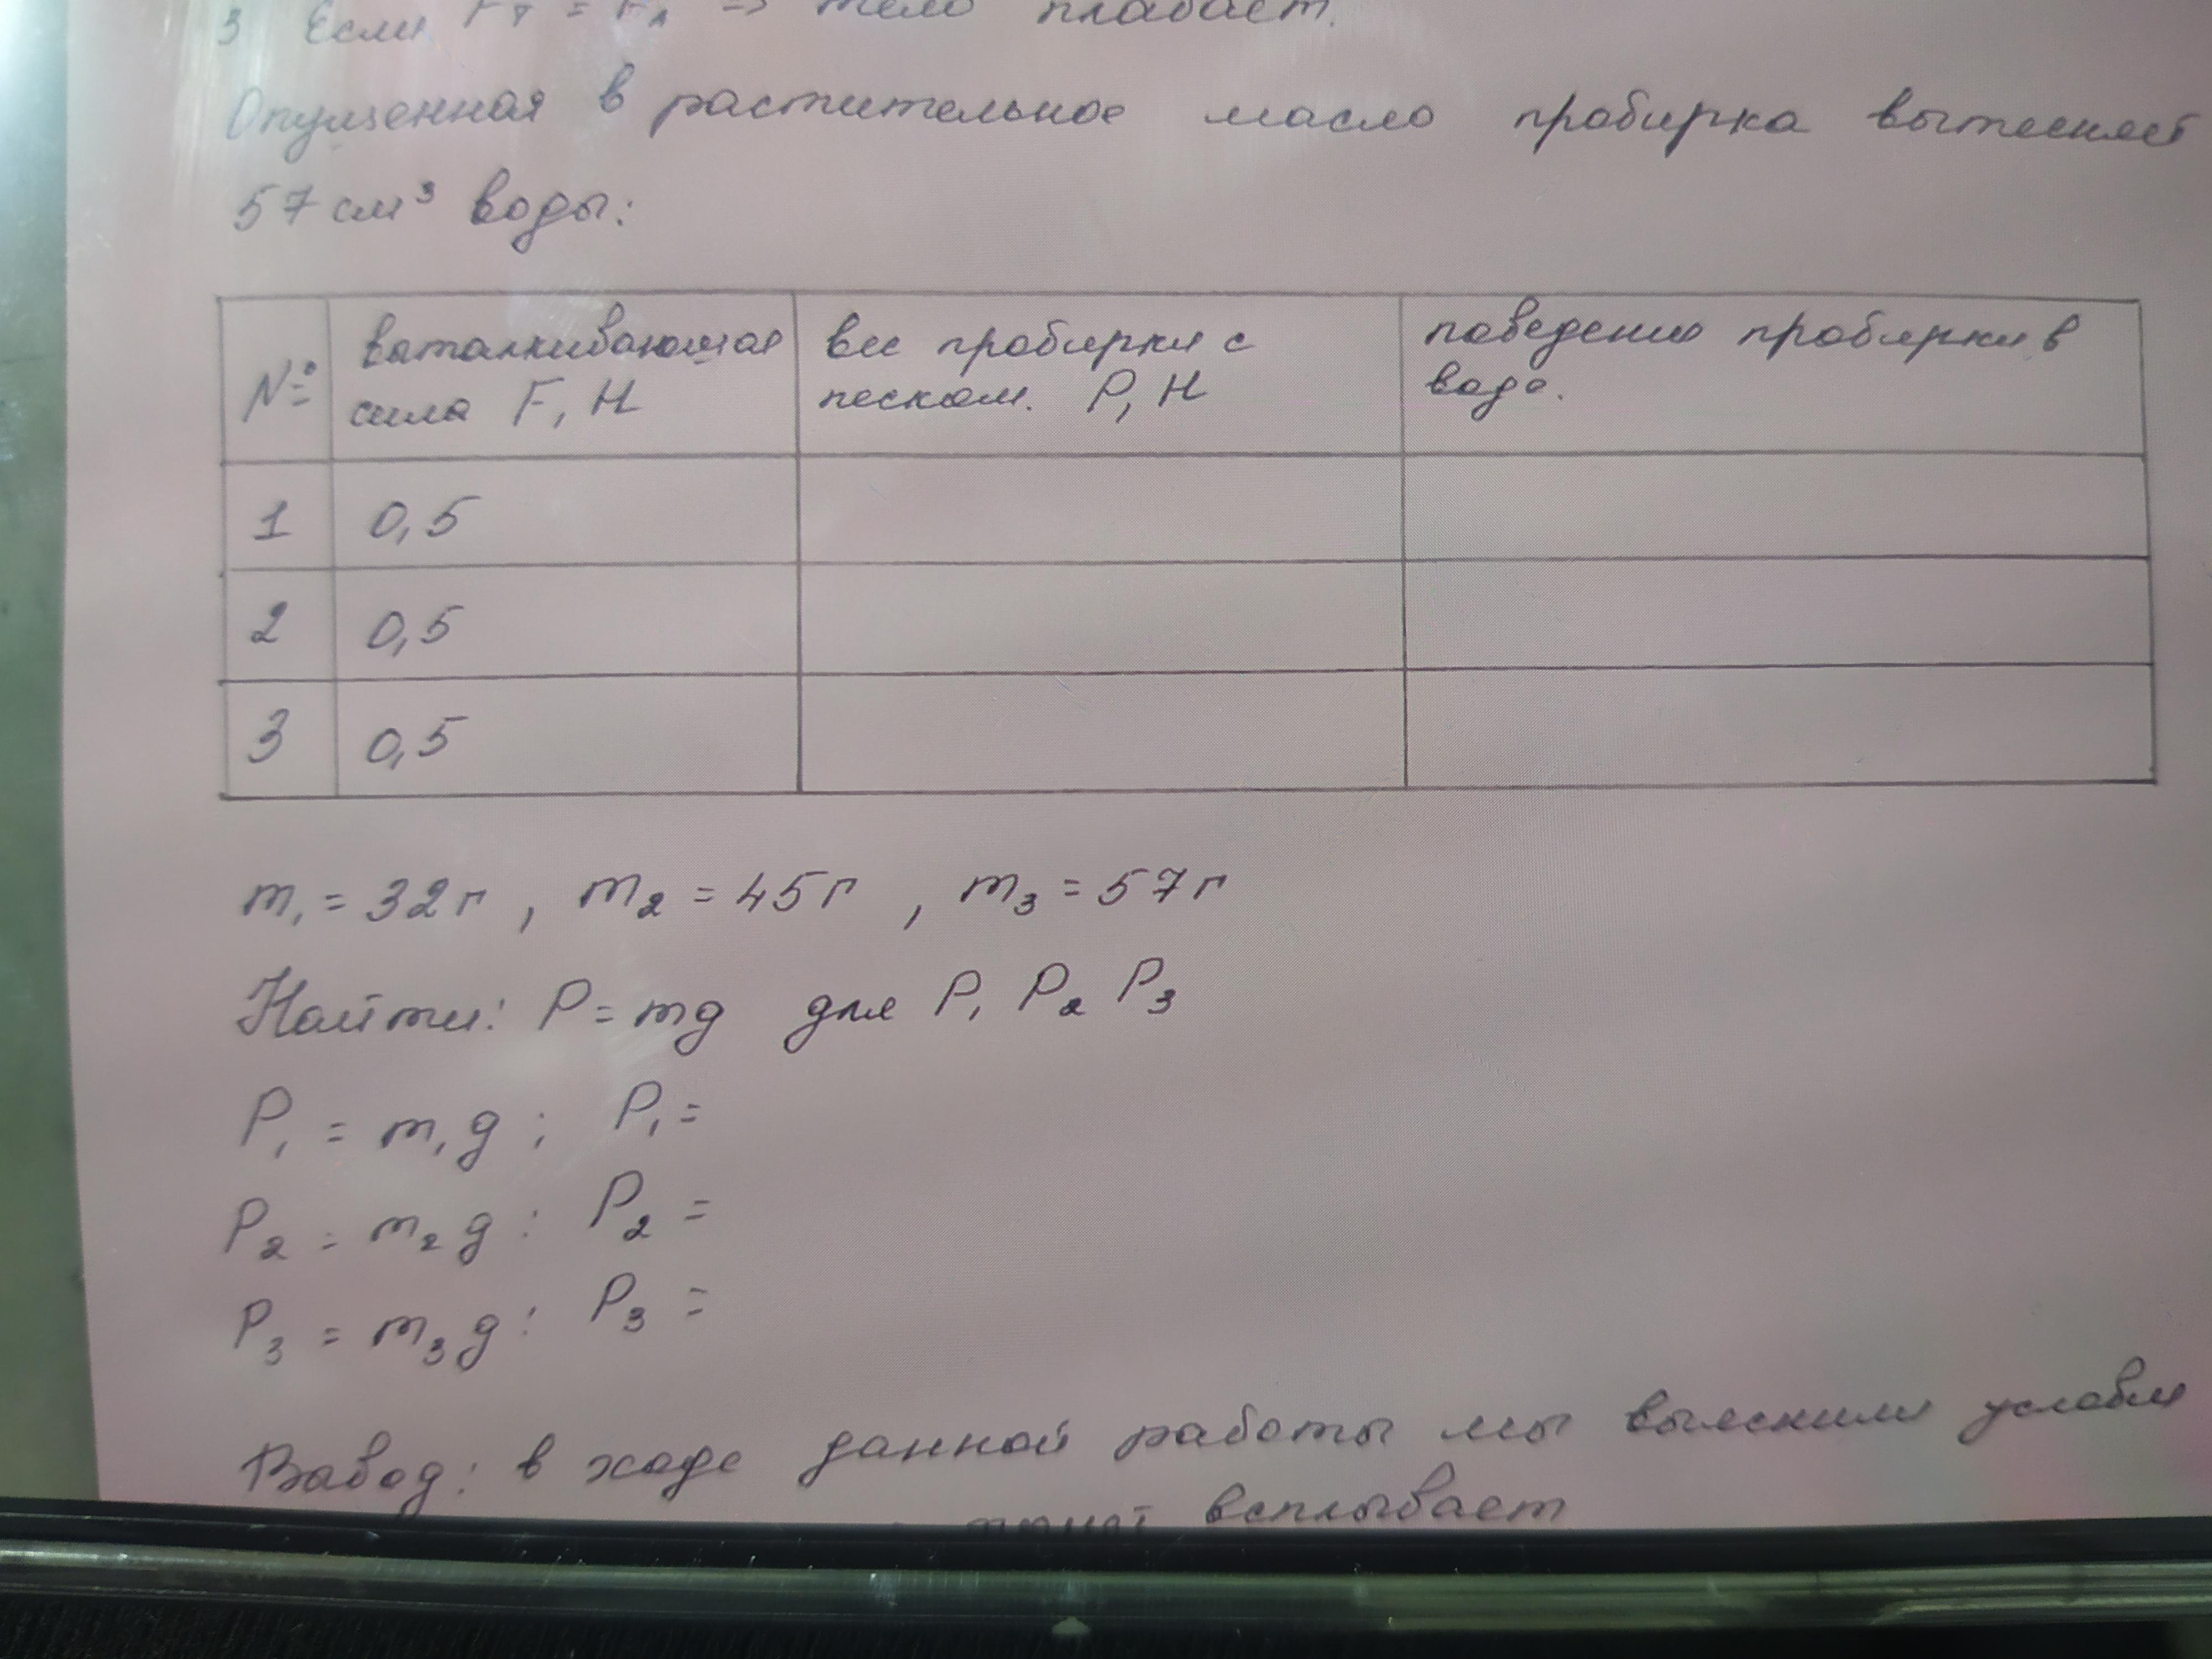 3 Если Fт = FА => тело плавает.
Опущенная в растительное масло пробирка вытесняет
57 см³ воды:
№ выталкивающая сила F, Н вес пробирки с песком. P, Н поведение пробирки в воде.
1 0,5
2 0,5
3 0,5
m₁ = 32 г , m₂ = 45 г , m₃ = 57 г
Найти: P = mg для P₁ P₂ P₃
P₁ = m₁g ; P₁ =
P₂ = m₂g : P₂ =
P₃ = m₃g : P₃ =
Вывод: в ходе данной работы мы выяснили условия
тонет всплывает